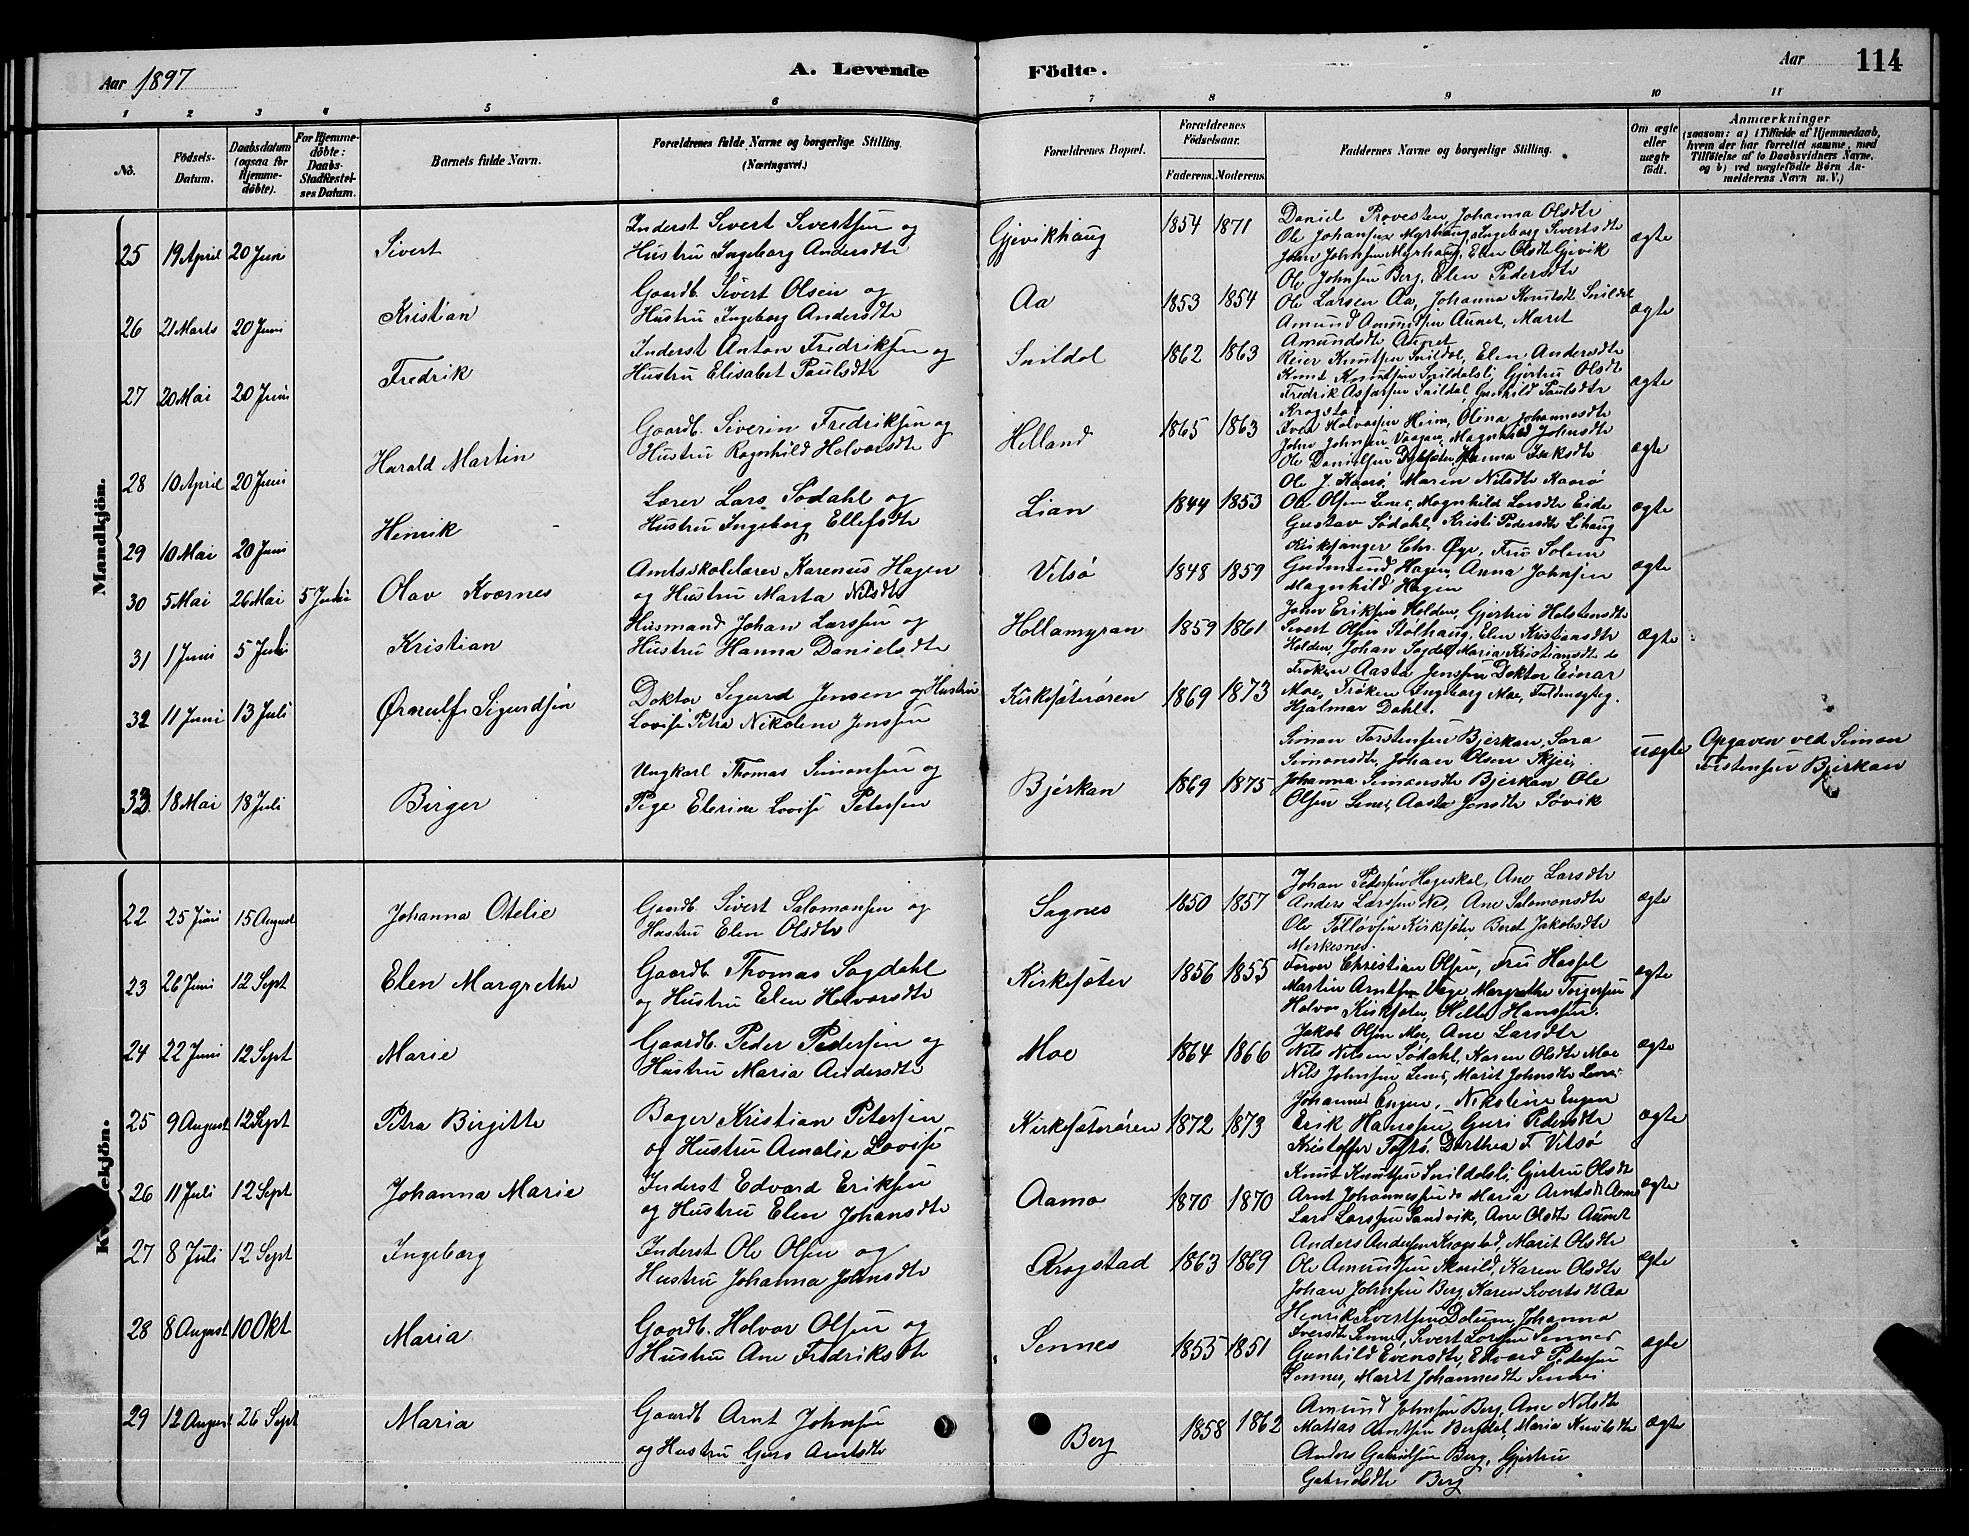 Aar 1897
A. Levende Fødte.
Aar 114
1 2 3 4 5 6 7 8 9 10 11
No.
Fødsels-Datum.
Daabsdatum (ogsaa for Hjemme-døbte).
For Hjemme-døbte: Daabs-Stadfestel-ses Datum.
Barnets fulde Navn.
Forældrenes fulde Navne og borgerlige Stilling. (Næringsvei.)
Forældrenes Bopæl.
Forældrenes Fødselsaar. Faderens. Moderens.
Faddernes Navne og borgerlige Stilling.
Om ægte eller uægte født.
Anmærkninger (saasom: a) i Tilfælde af Hjemmedaab, hvem der har forrettet samme, med Tilføielse af to Daabsvidners Navne, og b) ved uægtefødte Børn An-melderens Navn m. V.)
Mandkjøn.
25 19 April 20 Juni Sivert
Inderst Sivert Sivertsen og
Hustru Ingeborg Andersdtr
Gjevikhaug 1854 1871
Daniel Provesten Johanna Olsdtr
Ole Johansen Myrhaug, Ingeborg Sivertsdtr
John Johnsen Myrhaug, Elen Olsdtr Gjevik
ægte
26 21 Marts 20 Juni Kristian
Gaardb. Sivert Olsen og
Hustru Ingeborg Andersdtr
Aa 1853 1854
Ole Johnsen Berg, Elen Pedersdtr
Ole Larsen Aa, Johanna Knutsdtr Snildal
Amund Amundsen Aunet, Maret
Amundsdtr Aunet
ægte
27 20 Mai 20 Juni Fredrik
Inderst Anton Fredriksen og
Hustru Elisabet Paulsdtr
Snildal 1862 1863
Reier Knutsen Snildal, Elen Andersdtr
Knut Knutsen Snildalsli, Gjertru Olsdtr
Fredrik Snildal, Gunhild Paulsdtr
Krogstad
ægte
28 10 April 20 Juni Harald Martin
Gaardb. Siverin Fredriksen og
Hustru Ragnhild Halvorsdtr
Helland 1865 1863
Halvorsen Heim, Olina Johannesdtr
John Johnsen Vaagan, Magnhild Johnsdtr
Ole Danielsen Hanna Isaksdtr
ægte
29 10 Mai 20 Juni Henrik
Lærer Lars Sødahl og
Hustru Ingeborg Ellefsdtr
Lian 1844 1853
Ole J. Kaarø, Maren Nilsdtr Kaarø
Ole Olsen Lenes, Magnhild Larsdtr Eide
Gustav Sødahl, Kristi Pedersdtr Lihaug
ægte
30 5 Mai 26 Mai 5 Juli Olav Kvernes
Amtsskolelærer Karenus Hagen
og Hustru Marta Nilsdtr
Vitsø 1848 1859
Kirkesanger Chr. Øye, Fru Solem
Gudmund Hagen, Anna Johnsen
Magnhild Hagen
ægte
31 1 Juni 5 Juli Kristian
Husmand Johan Larssen og
Hustru Hanna Danielsdtr
Hollamyran 1859 1861
John Eriksen Holden, Gjertru Holstensdtr
Sivert Olsen Stolhaug, Elen Kristensdtr
Holden, Johan Sagdal, Maria Kristiansdtr do
ægte
32 11 Juni 13 Juli Ørnulf Sigurdsøn
Doktor Sigurd Jensen og Hustru
Lovise Petra Nikoline Jenssen
Kirksæterøren 1869 1873
Frøken Aasta Jenssen, Doktor Einar
Moe, Frøken Ingeborg Moe, Fuldmægtig
Hjalmar Dahl.
33 18 Mai 18 Juli Birger
Ungkarl Thomas Simonsen og
Pige Elerine Lovise Petersen
Bjerkan 1869 1875
Simon Torstensen Bjerkan, Sara
Simonsdtr, Johan Olsen Skjei,
Johanna Simonsdtr Bjerkan Ole
Olsen Lenes, Aasta Jonsdtr Søvik
uægte
Opgaven ved Simon
Torstensen Bjerkan
Kvindekjøn.
22 25 Juni 15 August Johanna Otelie
Gaardb. Sivert Salomonsen og
Hustru Elen Olsdtr
Sagnes 1850 1857
Johan Pedersen Hageskal, Ane Larsdtr
Anders Larssen Nes, Ane Salomonsdtr
Ole Tølløvsen Kirksæter, Beret Jakobsdtr
Merkesnes.
ægte
23 26 Juni 12 Sept Elen Margrethe
Gaardb. Thomas Sagdahl
og Hustru Elen Halvorsdtr
Kirksæter 1856 1855
Farver Christian Olsen, Fru Hassel
Martin Arntsen Vage, Margrethe Torgersen
Halvor Kirksæter, Hilda Hanssen.
ægte
24 22 Juni 12 Sept Marie
Gaardb. Peder Pedersen og
Hustru Maria Andersdtr
Moe 1864 1866
Jakob Olsen Moe, Ane Larsdtr
Nils Nilsen Sødahl, Karen Olsdtr Moe
Nils Johnsen Lenes, Marit Johnsdtr Lenes
ægte
25 9 August 12 Sept Petra Birgitte
Bager Kristian Petersen
og Hustru Amalie Lovise
Kirksæterøren 1872 1873
Johannes Engen, Nikoline Engen
Erik Hanssen, Guri Pedersdtr
Kristoffer Toftø, Dorthea F. Vitsø
ægte
26 11 Juli 12 Sept Johanna Marie
Inderst Edvard Eriksen
og Hustru Elen Johansdtr
Aamo 1870 1870
Knut Knutsen Snildalsli, Gjertru Olsdtr
Arnt Johannessen do Maria Arntsdtr Aamo
Lars Larssen Sandvik, Ane Olsdtr Aunet
ægte
27 8 Juli 12 Sept Ingeborg
Inderst Ole Olsen og
Hustru Johanna Johnsdtr
Krogstad 1863 1869
Anders Andersen Krogstad, Marit Olsdtr
Ole Amundsen Skarild, Karen Olsdtr
Johan Johnsen Berg, Karen Sivertsdtr Aa
ægte
28 8 August 10 Okt Maria
Gaardb. Halvor Olsen og
Hustru Ane Fredriksdtr
Sennes 1855 1851
Henrik Sivertsen Dolum, Johanna
Iversdtr Sennes, Sivert Larssen Sennes
Gunhild Evensdtr, Edvard Pedersen
Sonnes, Marit Johannesdtr Sennes
ægte
29 12 August 26 Sept Maria
Gaardb. Arnt Johnsen
og Hustru Guro Arntsdtr
Berg 1858 1862
Amund Johnsen Berg, Ane Nilsdtr
Matias Arntsen Bergdal, Maria Knutsdtr
Anders Gabrielsen Berg, Gjertru
Gabrielsdtr Berg
ægte